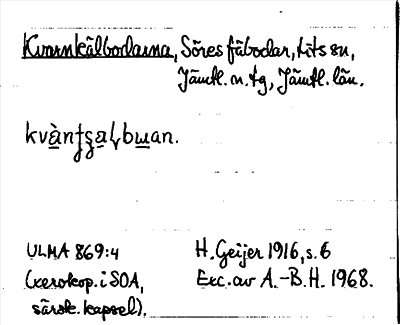 Kvarnkälbodarna, Söres fäbodar, Lits sn,
Jämtl. n. tg, Jämtl. län.
kvàntʂaɭbɯan.
ULMA 869:4
(xerokop. i SOA,
särsk. kapsel).
H. Geijer 1916, s. 6
Exc. av A.-B.H. 1968.